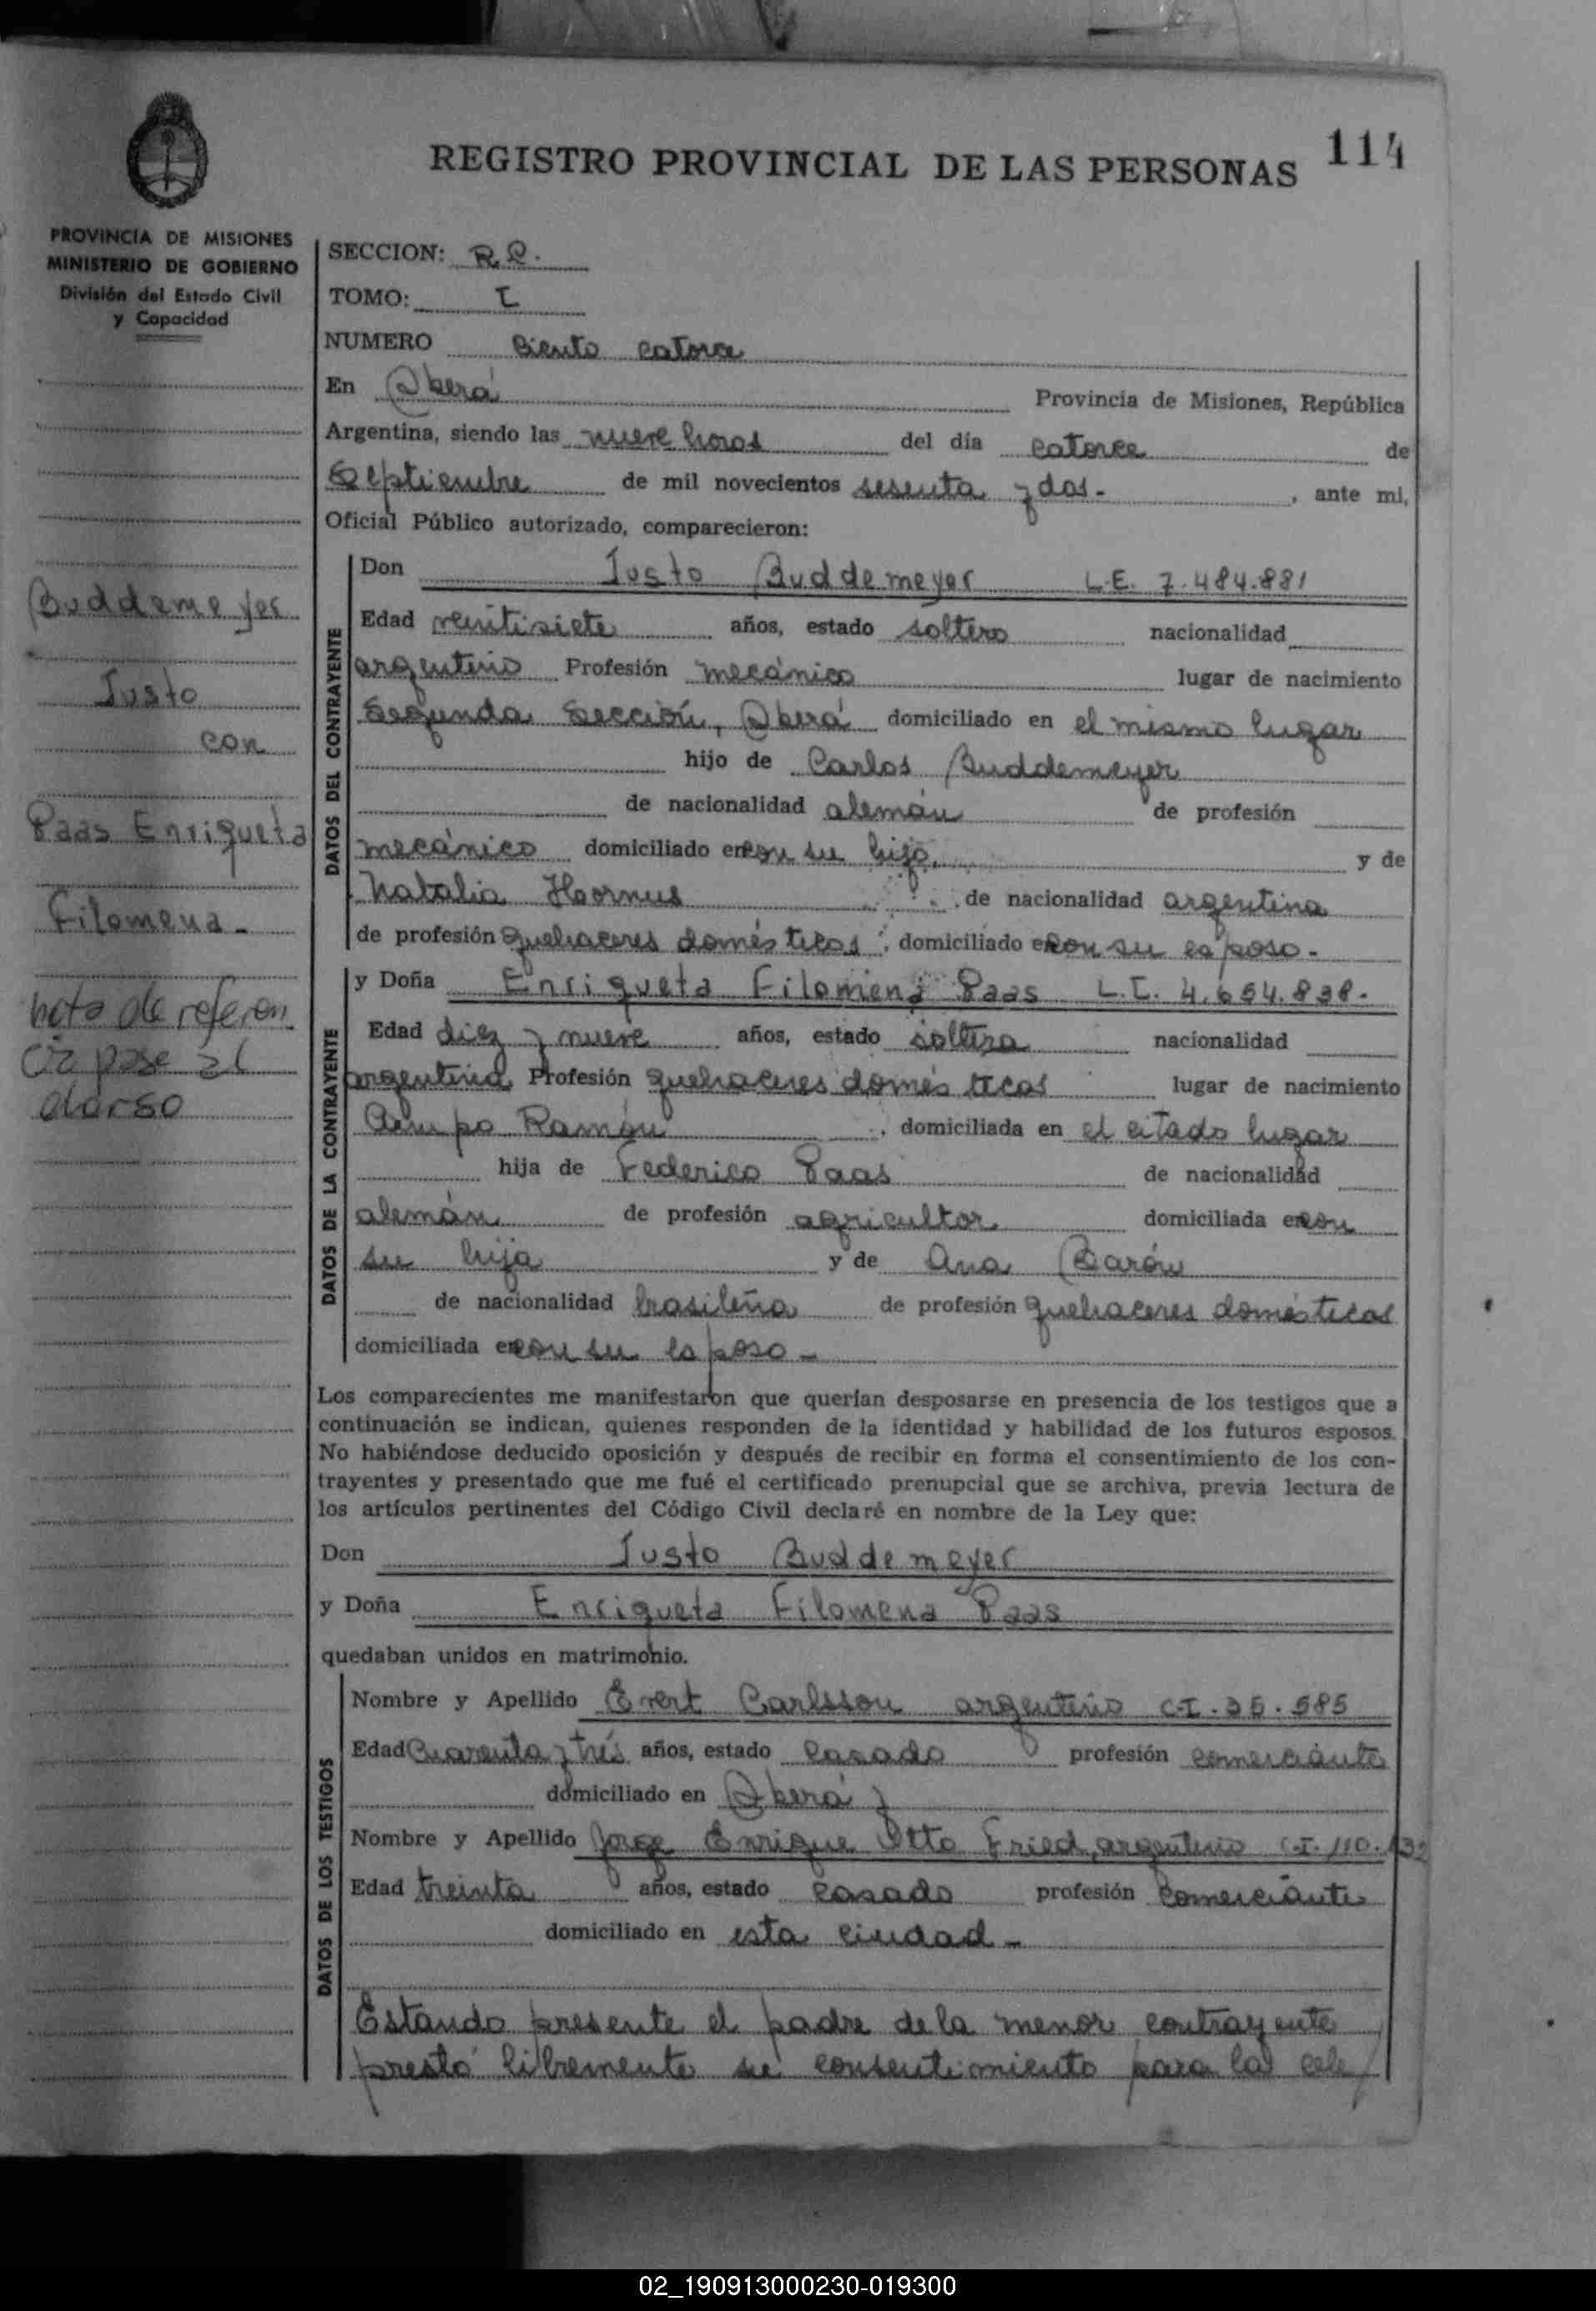 REGISTRO PROVINCIAL DE LAS PERSONAS 114
PROVINCIA DE MISIONES
MINISTERIO DE GOBIERNO
División del Estado Civil
y Capacidad
Buddemeyer
Justo
con
Paas Enriqueta
Filomena-
nota de referen
cia pase al
dorso
SECCION: R.P.
TOMO: I
NUMERO Ciento catorce
En Oberá Provincia de Misiones, República
Argentina, siendo las nueve horas del día catorce de
Septiembre de mil novecientos sesenta y dos- , ante mi,
Oficial Público autorizado, comparecieron:
DATOS DEL CONTRAYENTE
Don Justo Buddemeyer L.E. 7.484.881
Edad veintisiete años, estado soltero nacionalidad
argentino Profesión mecánico lugar de nacimiento
Segunda Sección, Oberá domiciliado en el mismo lugar
hijo de Carlos Buddemeyer
de nacionalidad alemán de profesión
mecánico domiciliado en con su hijo, y de
Natalia Hoornus de nacionalidad argentina
de profesión quehaceres domésticos, domiciliado en con su esposo-
DATOS DE LA CONTRAYENTE
y Doña Enriqueta Filomena Paas L.C. 4.654.838-
Edad diez y nueve años, estado soltera nacionalidad
argentina Profesión quehaceres domésticos lugar de nacimiento
Campo Ramón, domiciliada en el citado lugar
hija de Federico Paas de nacionalidad
alemán de profesión agricultor domiciliada en con
su hija y de Ana Barón
de nacionalidad brasileña de profesión quehaceres domésticos
domiciliada en con su esposo-
Los comparecientes me manifestaron que querían desposarse en presencia de los testigos que a
continuación se indican, quienes responden de la identidad y habilidad de los futuros esposos.
No habiéndose deducido oposición y después de recibir en forma el consentimiento de los con-
trayentes y presentado que me fué el certificado prenupcial que se archiva, previa lectura de
los artículos pertinentes del Código Civil declaré en nombre de la Ley que:
Don Justo Buddemeyer
y Doña Enriqueta Filomena Paas
quedaban unidos en matrimonio.
DATOS DE LOS TESTIGOS
Nombre y Apellido Evert Carlsson argentino C.I. 35.585
Edad Cuarenta y trés años, estado casado profesión comerciante
domiciliado en Oberá y
Nombre y Apellido Jorge Enrique Otto Fried, argentino C.I. 110.132
Edad treinta años, estado casado profesión comerciante
domiciliado en esta ciudad-
Estando presente el padre de la menor contrayente
prestó libremente su consentimiento para la cele/
02_190913000230-019300